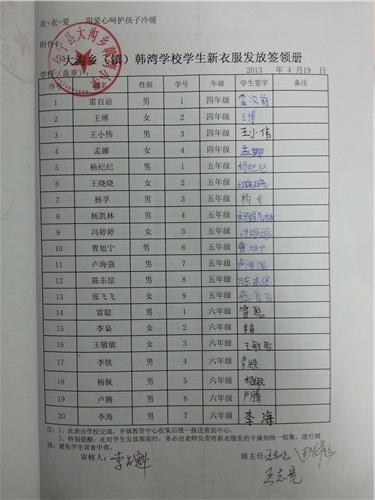 衣·衣·爱 用爱心呵护孩子冷暖
附件4
大沟乡（镇）韩湾学校学生新衣服发放签领册
学校（盖章）： 2013 年 4 月19 日
序号 姓名 性别 学号 年级 学生签字 备注
1 雷自前 男 1 四年级
2 王博 女 2 四年级 王博
3 王小伟 男 3 四年级 王小伟
4 孟娜 女 4 四年级 孟娜
5 杨纪纪 男 1 五年级 杨纪纪
6 王晓晓 女 2 五年级 王晓晓
7 杨孚 男 3 五年级
8 杨凯林 男 4 五年级 杨凯林
9 冯婷婷 女 5 五年级 冯婷婷
10 曹旭宁 女 6 五年级 曹旭宁
11 卢海强 男 7 五年级 卢海强
12 陈东倌 男 8 五年级
13 张飞飞 女 9 五年级 张飞飞
14 雷聪 男 1 六年级 雷聪
15 李枭 女 2 六年级
16 王敏敏 女 3 六年级 王敏敏
17 李铁 男 4 六年级 李铁
18 杨佩 男 5 六年级 杨佩
19 卢腾 男 6 六年级 卢腾
20 李海 男 7 六年级 李海
注：1、此表由学校完成，乡镇教管中心收集后统一报送资助中心。
2、特别提醒：在对学生发放服装时，务必由老师负责将新衣服里的干燥剂统一收集，进行销
毁，避免学生误食中毒。
审核人： 班主任：